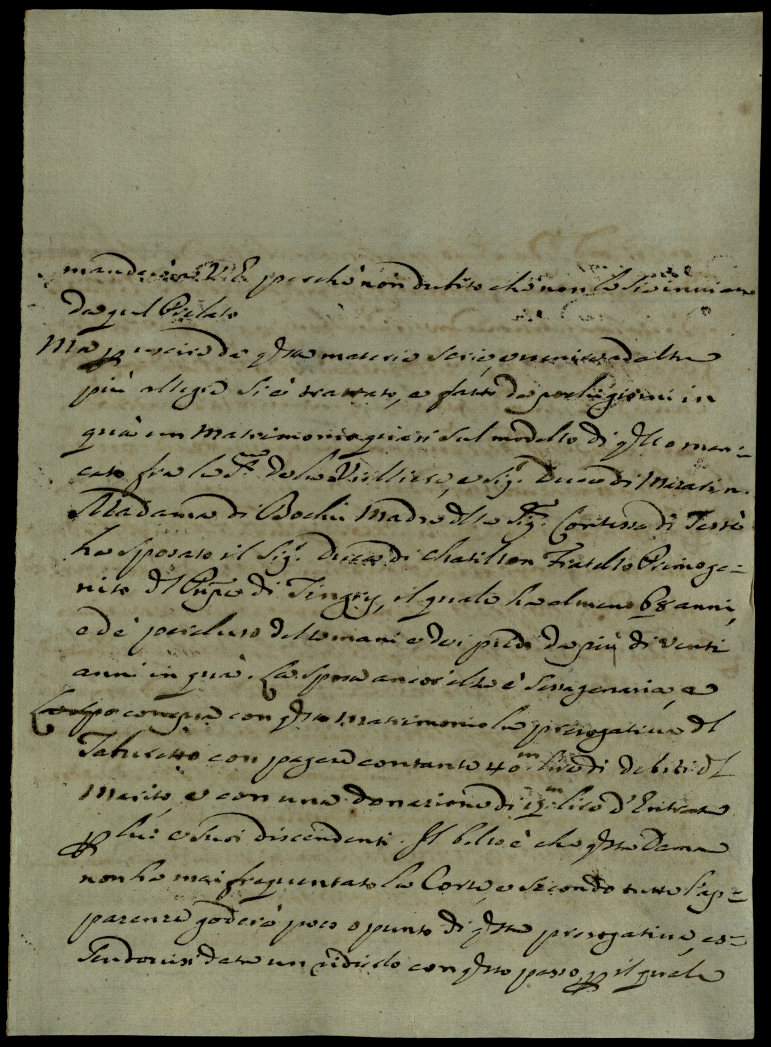 mandarà a V.E. perche non dubito che non le sia inviata
da quel Prelato
Ma p uscire da qsta materia seria, e venire ad altra
più allegra si è trattato, e fatto da pochi giorni in
quà un Matrimonio quasi sul modello di qllo man=
cato fra la F. de la Vielliere, e Sigr Duca di Mazarin.
Madama di Bochi Madre dlla Sigra Contessa di Tessè
ha sposato il Sigr Duca di Chatillon Fratello Primoge=
nito dl Prnpe di Tingry, il quale ha almeno 68 anni,
ed è paraluso delle mani e dei piedi da più di venti
anni in quà. La sposa ancor'essa è sessagenaria, e
compra con qsto Matrimonio la prerogativa dl
Taburetto con pagare contante 40m lire di debiti dl
Marito, e con una donazione di lire d'Entrata
p lui e suoi discendenti. Il bello è che qsta Dama
non ha mai frequentato la Corte, e secondo tutte l'ap=
parenze goderà poco o punto di qsta prerogativa, es=
sendosi data un ridicolo con qsto passo, p il quale